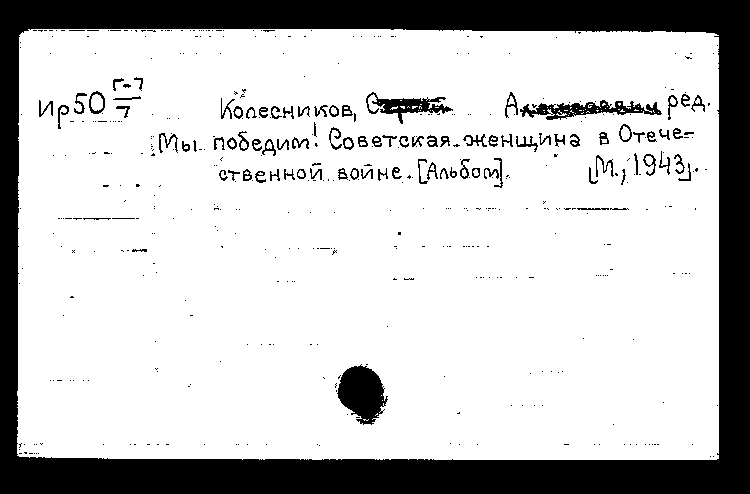 Ир50 Г-7/7
Колесников, С А ред.
Мы победим! Советская женщина в Отече-
ственной войне. [Альбом]. [М., 1943].